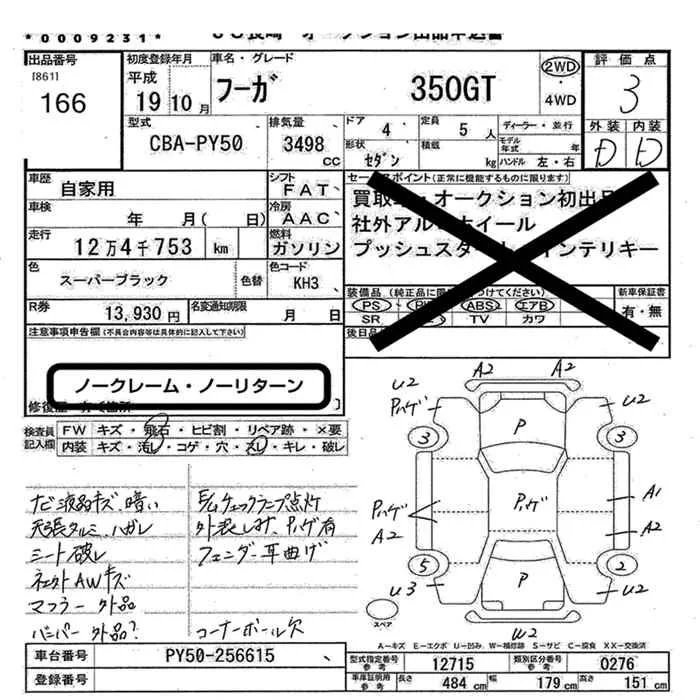 *0009231*
JU長崎 オークション出品申込書
出品番号 初度登録年月 車名・グレード 評価点
[861] 平成 フーガ 350GT 2WD・4WD 3
166 19年10月
型式 排気量 ドア 4 定員 5人 ディーラー・並行 外装 内装
CBA-PY50 3498cc 形状 セダン 積載 kg モデル年式 年 D D
ハンドル 左・右
車歴 自家用 シフト FAT セールスポイント(正常に機能するものに限ります)
車検 年 月( 日) 冷房 AAC 買取車・オークション初出品
走行 12万4千753 km 燃料 ガソリン 社外アルミホイール
プッシュスタート インテリキー
色 スーパーブラック 色替 色コード KH3
装備品(純正品に限 つけてください) 新車保証書
PS ABS エアB 有・無
SR TV カワ
R券 13,930円 名変通知期限 月 日
後日品
注意事項申告欄(不具合内容等は具体的に記入して下さい)
ノークレーム・ノーリターン
修復歴 有 箇所
検査員記入欄 FW キズ・飛石・ヒビ割・リペア跡・×要
内装 キズ・汚レ・コゲ・穴・スレ・キレ・破レ
ナビ液晶キズ、暗い
天張タルミ、ハガレ
シート破レ
ネェクトAWキズ
マフラー外品
バンパー外品?
E/gチェックランプ点灯
フェンダー耳曲げ
コーナーポール欠
A2 A2
U2 Pハゲ P U2
3 3
Pハゲ Pハゲ A1
A2 A2
5 2
U3 P U2
スペア U2
A-キズ E-エクボ U-凹み W-補修跡 S-サビ C-腐食 XX-交換済
車台番号 PY50-256615
登録番号
型式指定番号参考 12715 類別区分番号参考 0276
車庫証明用参考 長さ 484cm 幅 179cm 高さ 151cm